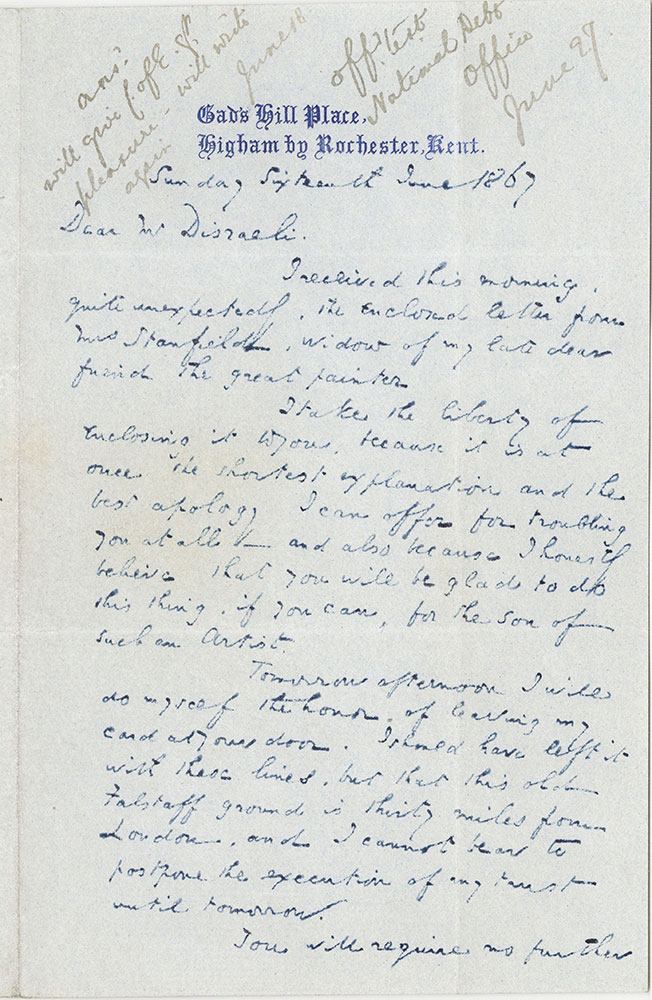 ans:
will give C of E. gt
pleasure - will write
again June 18.
off: test
National Debt
Office
June 27
Gad's Hill Place,
Higham by Rochester, Kent.
Sunday Sixteenth June 1867
Dear Mr Disraeli.
I received this morning,
quite unexpectedly, the enclosed letter from
Mrs Stanfield, widow of my late dear
friend the great painter
I take the liberty of
enclosing it to you, because it is at
once the shortest explanation and the
best apology I can offer for troubling
you at all — and also because I honestly
believe that you will be glad to do
this thing, if you can, for the son of
such an Artist.
Tomorrow afternoon I will
do myself the honor, of leaving my
card at your door. I should have left it
with these lines, but that this old
Falstaff ground is thirty miles from
London, and I cannot bear to
postpone the execution of my trust
until tomorrow.
You will require no further